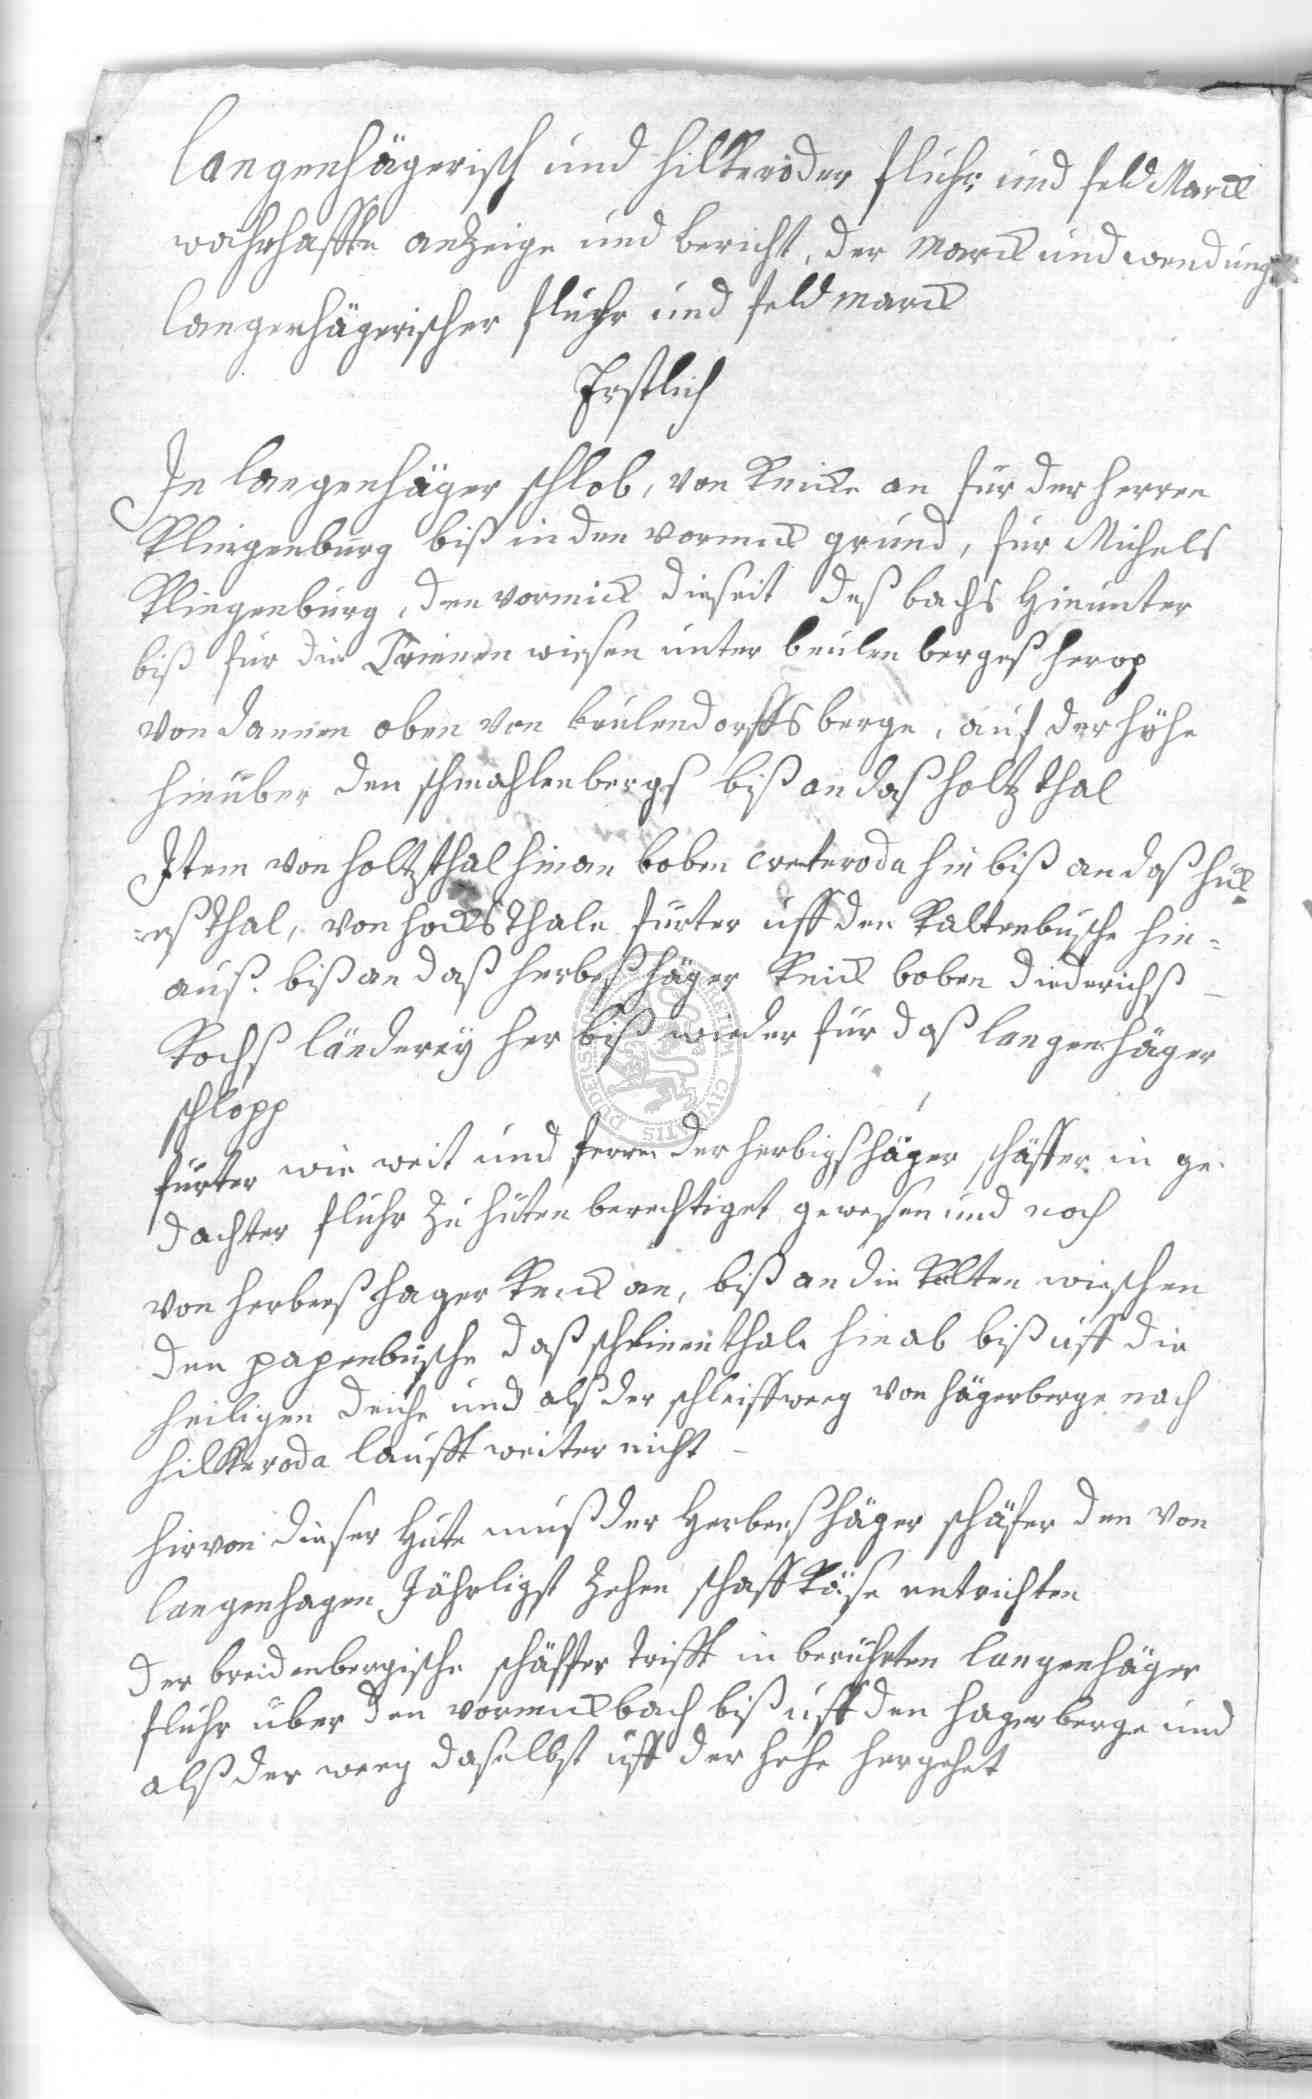 Langenhägerisch und Hilkeröder fluhr und feld Marck
wahrhaffte anzeige und bericht, der Marck und wendung
Langenhägerischer fluhr und feldmarck
Erstlich
In Langenhäger schlob, von Knicke an für der Herren
Klingenburg biß in den vormick grund, für Michels
Klingenburg, den vormick dieseit deß bachs hinunter
biß für die wiesen unter beulen bergeß herop
von dannen oben von beulendorffs berge, auf der höhe
hinüber den schmahlenbergs biß an daß holtzthal
Item von holtzthal hinan boben Creteroda hin biß an daß huck
=eßthal, von hocksthale furter uff den Kaltenbusche hin=
auß. biß an daß herbeßhäger Knick boben Diederichß
Kochß länderey her biß wieder für daß langenhäger
schlopp
fürter wie weit und ferne der herbigshäger schäffer in ge=
dachter fluhr zu hüten berechtiget gewesen und noch
von herbershager Knick an, biß an die Kalten wieschen
den papenbusche daß thale hinab biß uff die
heiligen deiche und alß der schleiffweeg von hägerberge nach
hilkeroda laufft weiter nicht
hirvon dieser Hute muß der Herbershäger schäfer den von
Langenhagen Jährligst zehen schaffkäse entrichten
Der breidenbergische schäffer trifft in berührten langenhäger
fluhr über den vormickbach biß uff den hagerberge und
alß der weeg daselbst uff der hehe hergehet
DUDERS CIVITATIS